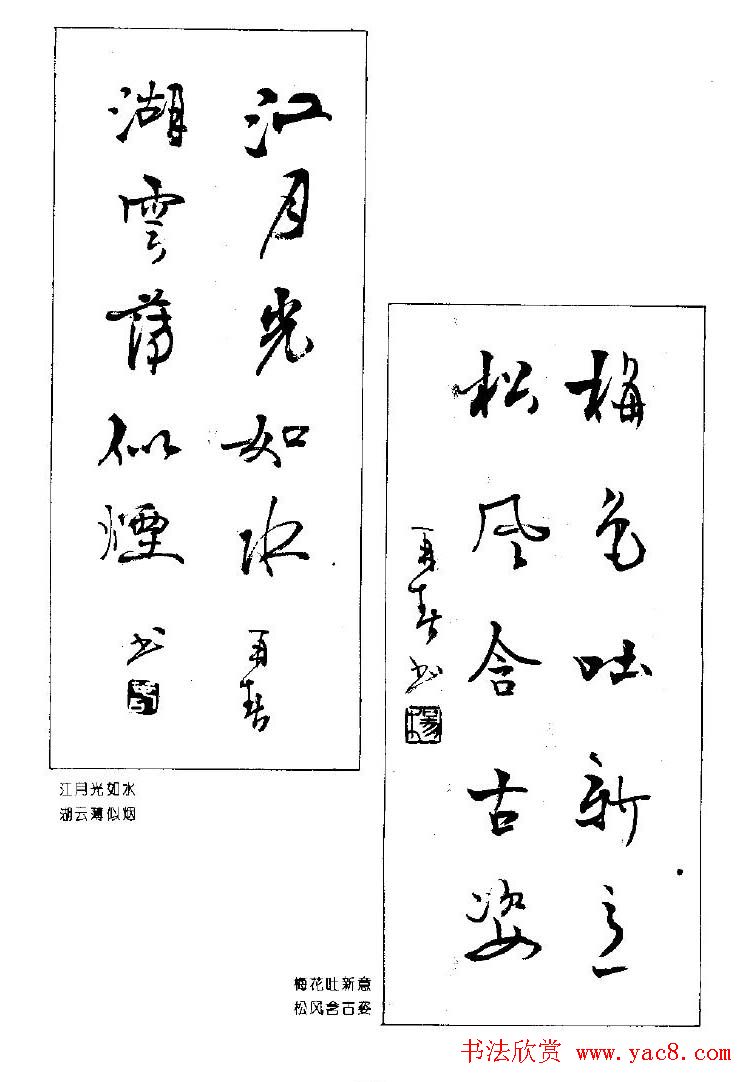 江月光如水 再春
湖雲薄似煙 书
江月光如水
湖云薄似烟
梅花吐新意
松風含古姿
再春书
楊
梅花吐新意
松风含古姿
书法欣赏 www.yac8.com